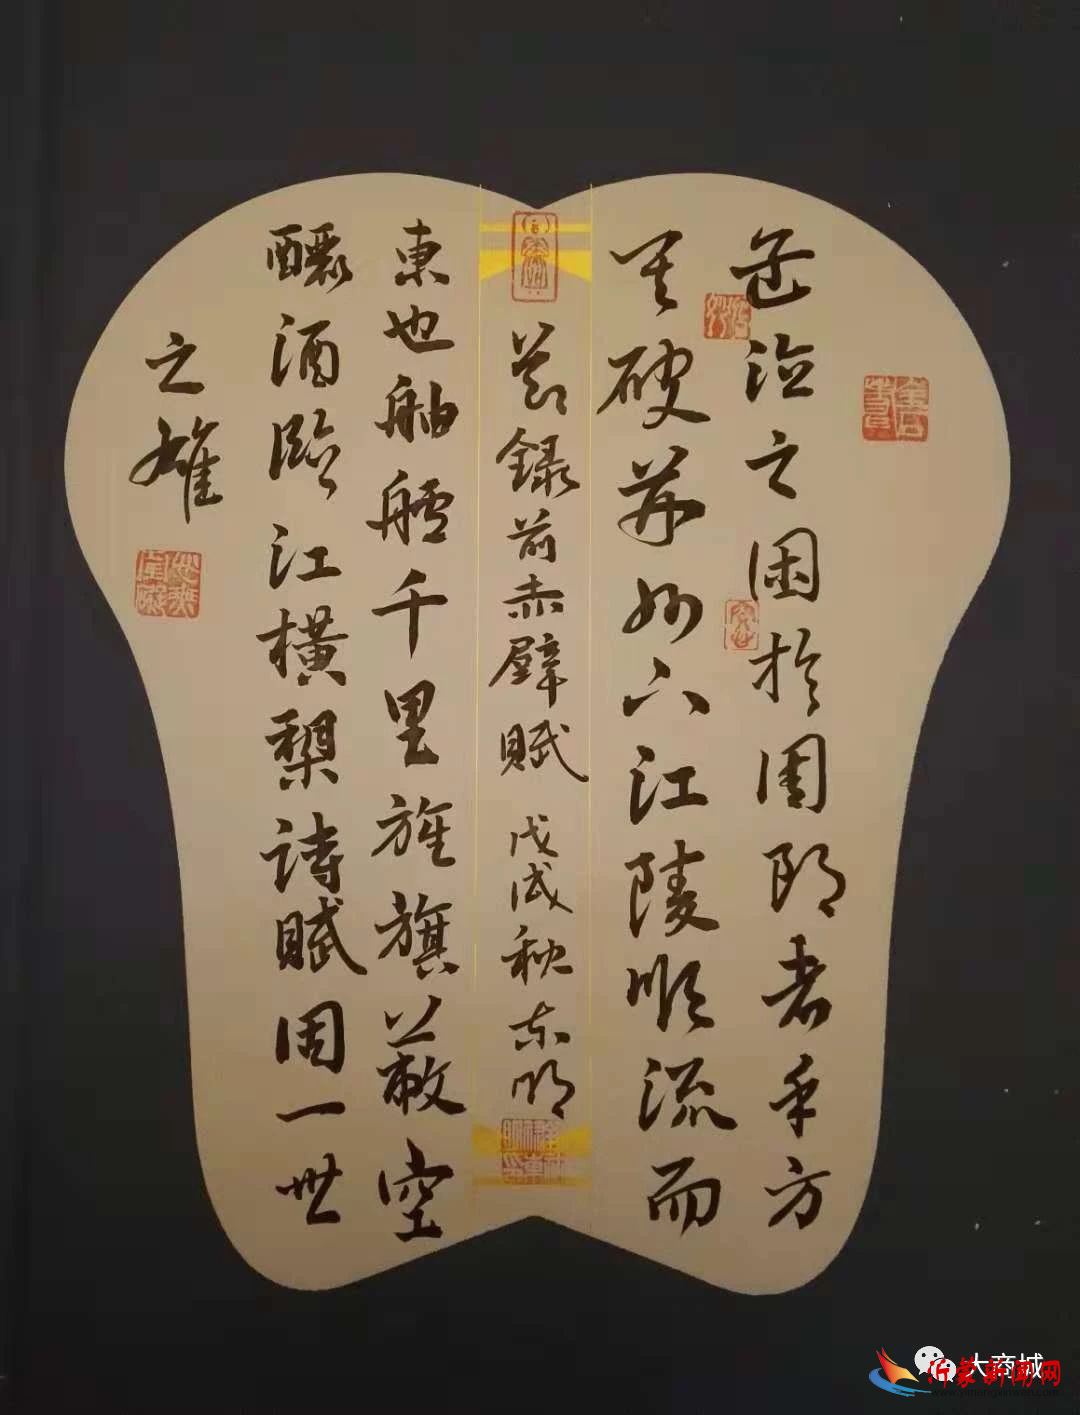 孟德之困於周郎者乎方
其破荊州下江陵順流而
節錄前赤壁賦 戊戌秋東明
東也舳艫千里旌旗蔽空
釃酒臨江橫槊詩賦固一世
之雄
大商城
沂蒙新闻网
www.yimengxinwen.com